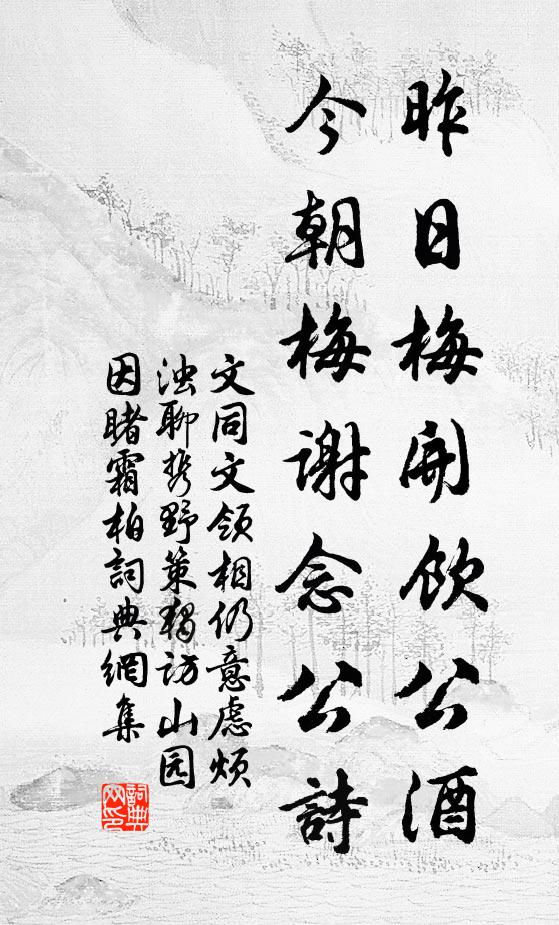 昨日梅開飲公酒
今朝梅謝念公詩
文同文領相仍意慮煩
浊聊携野策獨访山园
因睹霜柏詞典網集
詞典网印